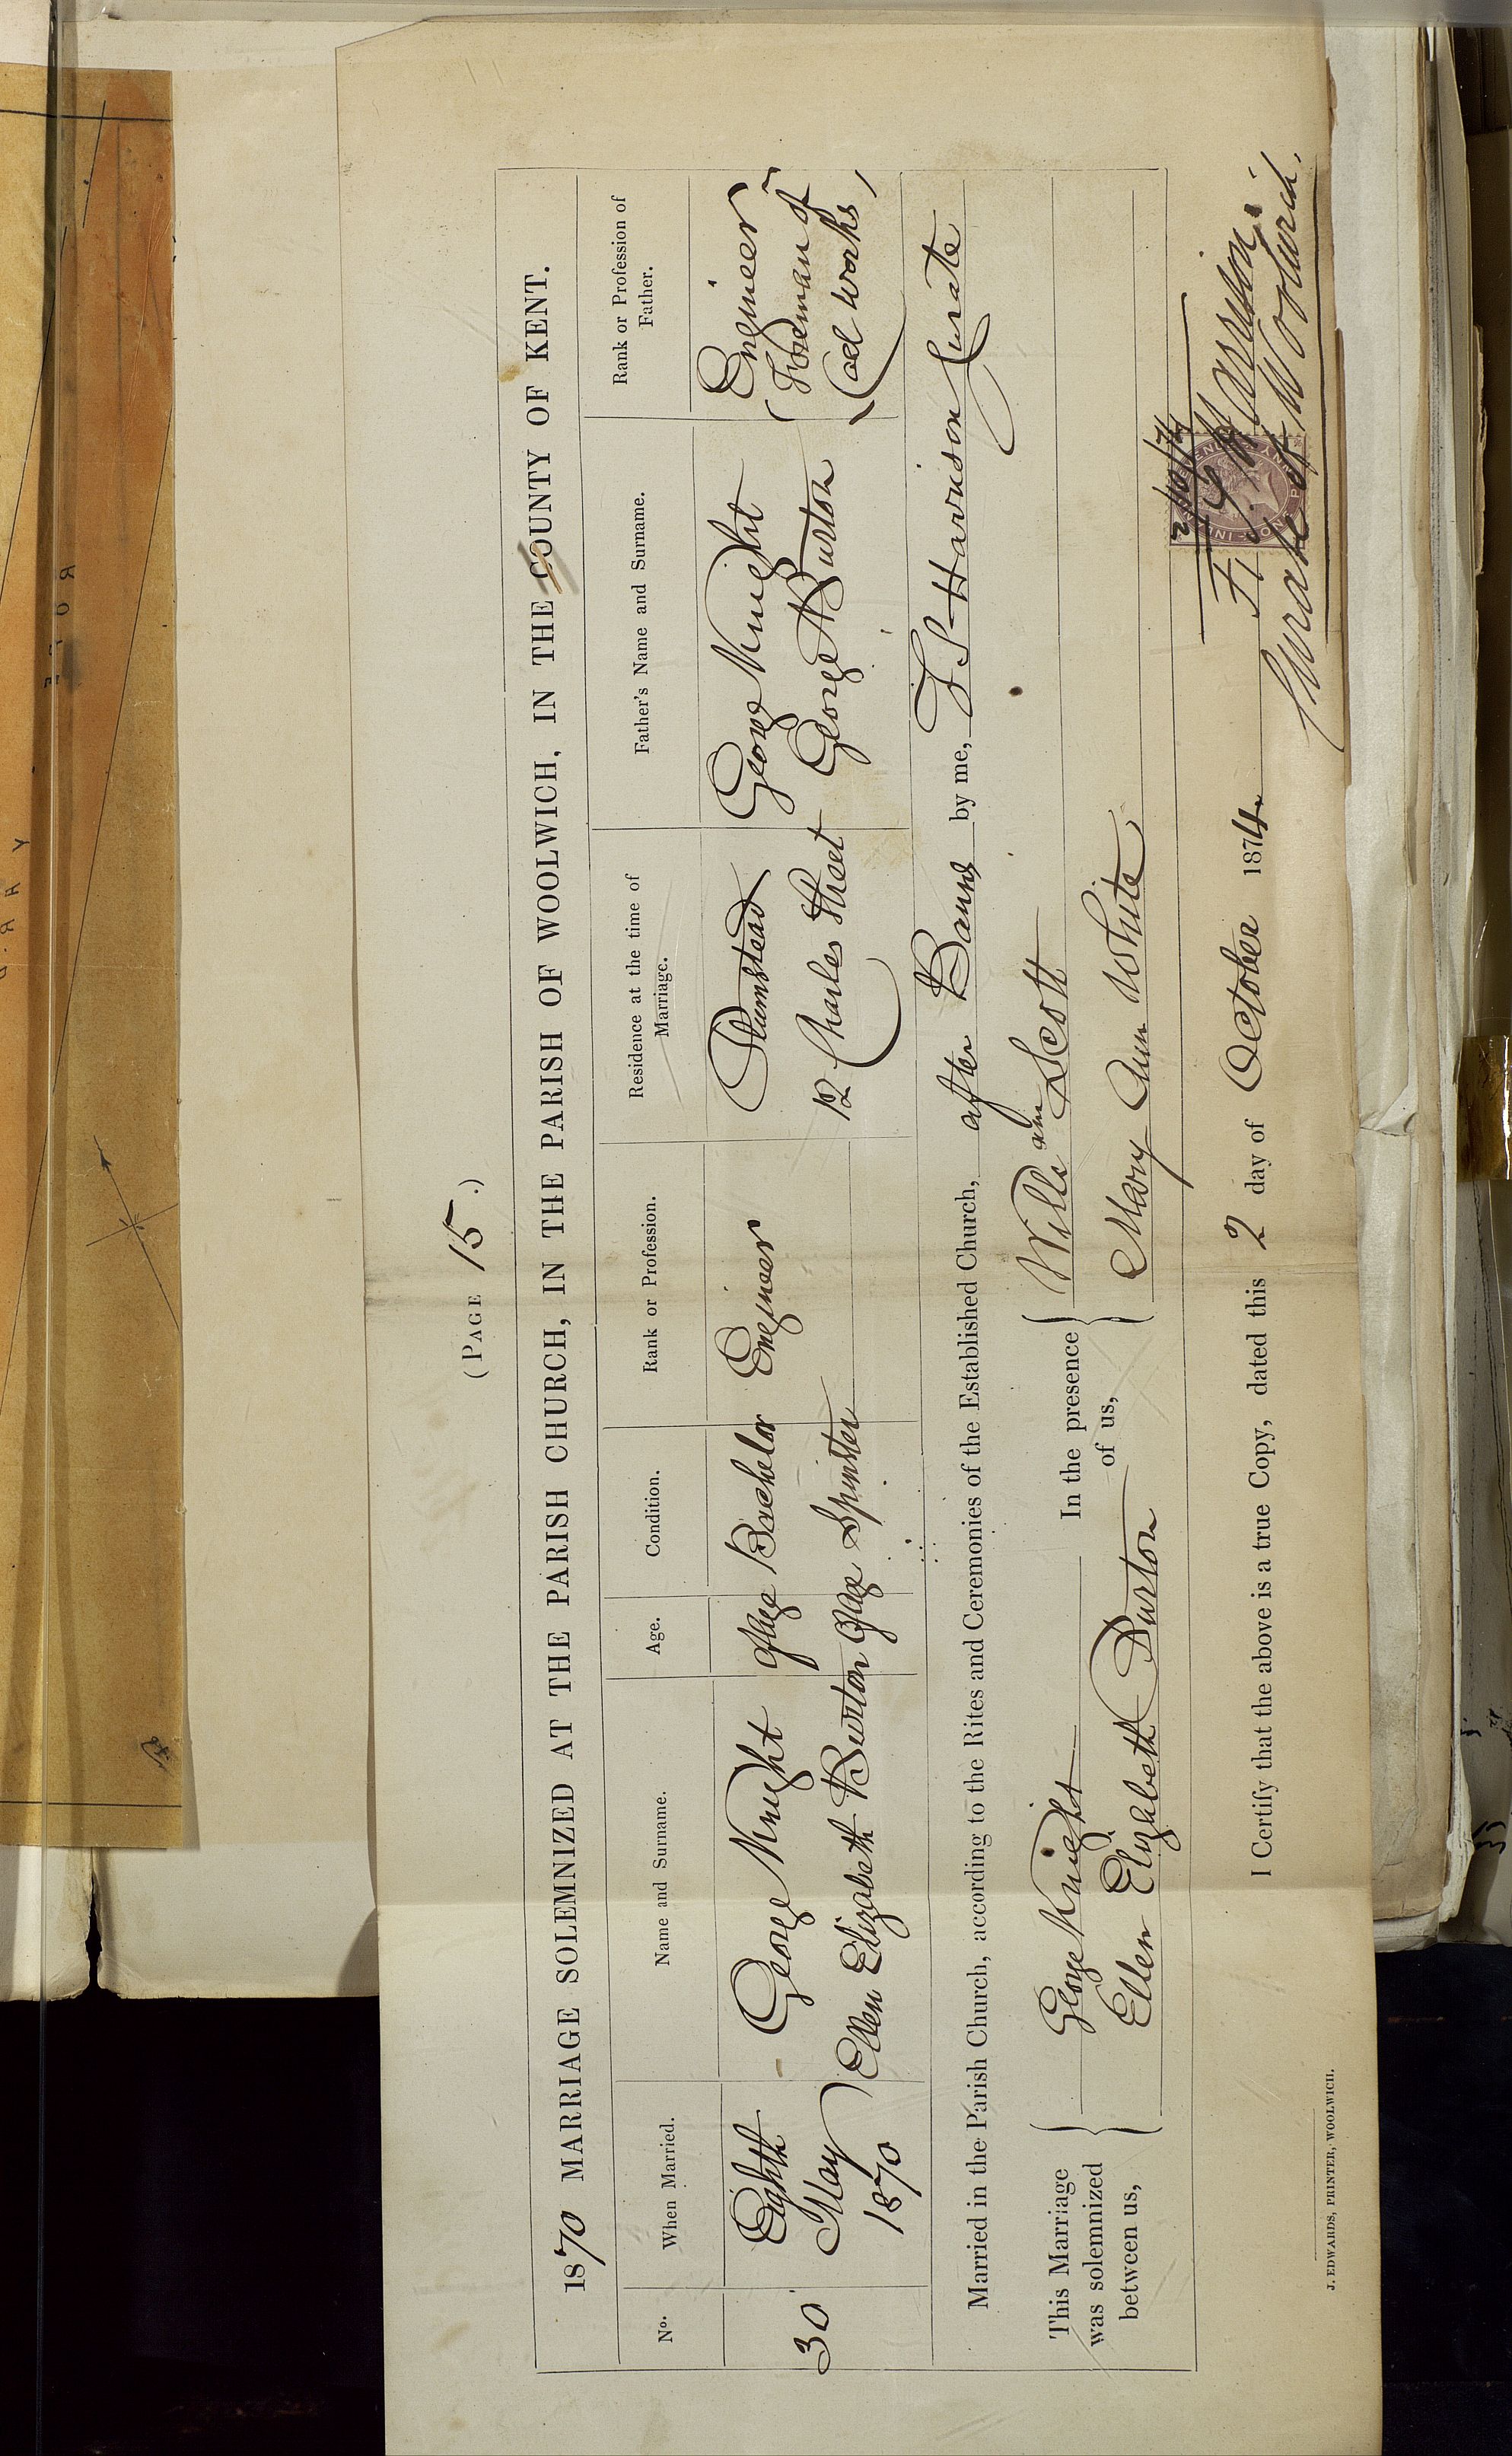 (PAGE 15.)
1870 MARRIAGE SOLEMNIZED AT THE PARISH CHURCH, IN THE PARISH OF WOOLWICH, IN THE COUNTY OF KENT.
No. When Married. Name and Surname. Age. Condition. Rank or Profession. Residence at the time of Marriage. Father's Name and Surname. Rank or Profession of Father.
30 Eighth May 1870
George Knight of Age Bachelor Engineer Plumstead George Knight Engineer
Ellen Elizabeth Burton of Age Spinster 12 Charles Street George Burton (Foreman of works)
Married in the Parish Church, according to the Rites and Ceremonies of the Established Church, after Banns by me, F S Harrison Curate
This Marriage was solemnized between us,
George Knight
Ellen Elizabeth Burton
In the presence of us,
William Scott
Mary Ann White
I Certify that the above is a true Copy, dated this 2 day of October 1874.
2/10/74
F. S. Harrison.
Curate of Woolwich.
ONE PENNY
J. EDWARDS, PRINTER, WOOLWICH.